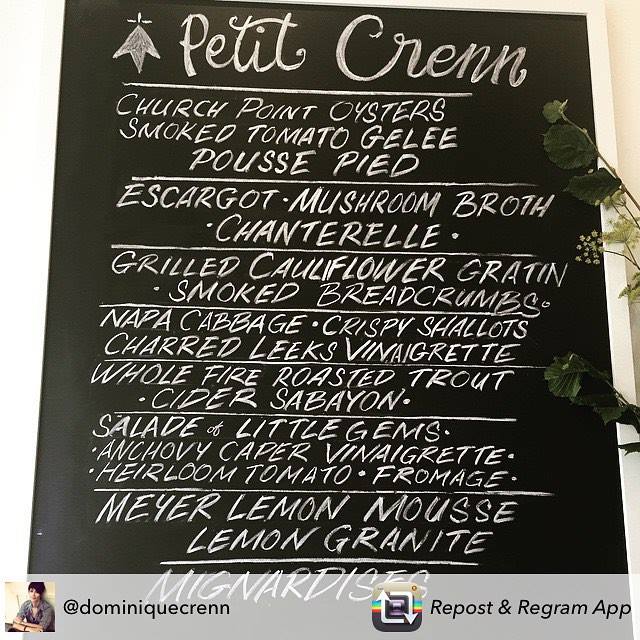 Petit Crenn
CHURCH POINT OYSTERS
SMOKED TOMATO GELEE
POUSSE PIED
ESCARGOT • MUSHROOM BROTH
• CHANTERELLE •
GRILLED CAULIFLOWER GRATIN
• SMOKED BREADCRUMBS •
NAPA CABBAGE • CRISPY SHALLOTS
CHARRED LEEKS VINAIGRETTE
WHOLE FIRE ROASTED TROUT
• CIDER SABAYON •
SALADE of LITTLE GEMS •
• ANCHOVY CAPER VINAIGRETTE •
• HEIRLOOM TOMATO • FROMAGE •
MEYER LEMON MOUSSE
LEMON GRANITE
MIGNARDISES
@dominiquecrenn
Repost & Regram App